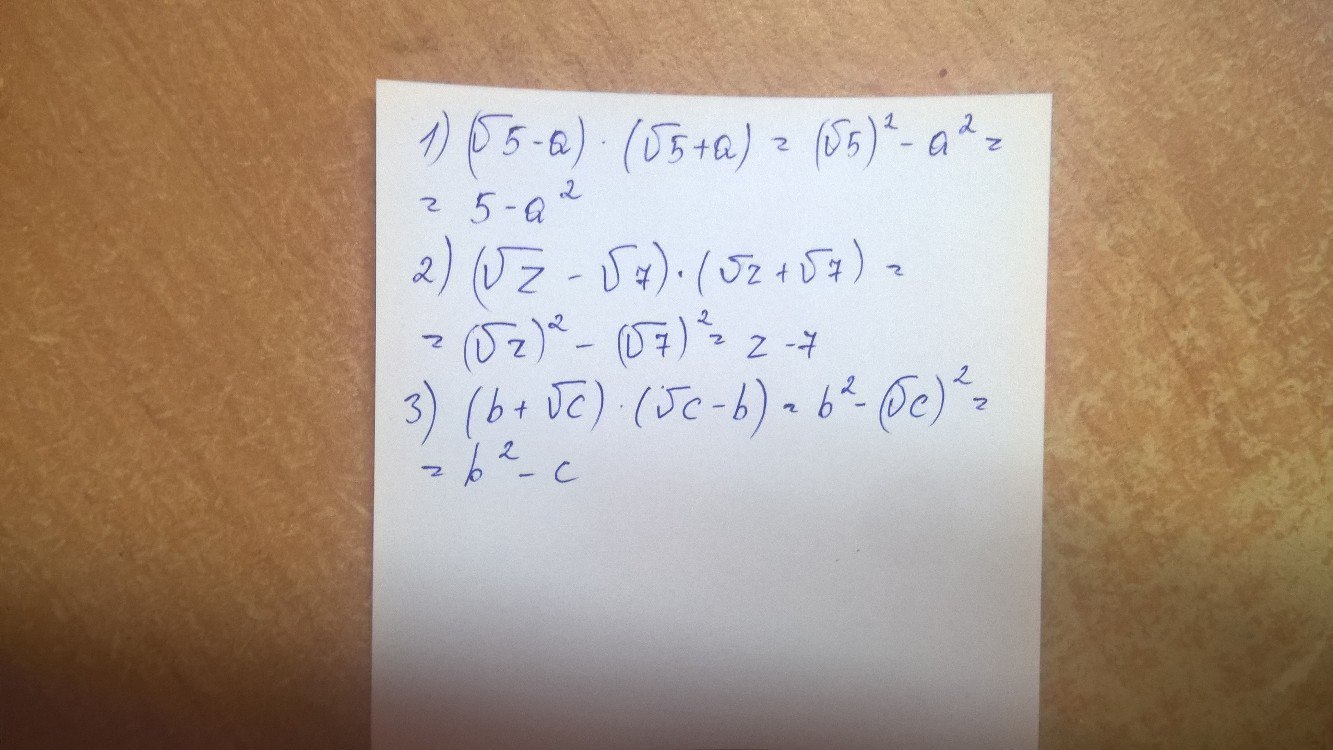 1) (√5-a)·(√5+a) = (√5)²-a² =
= 5-a²
2) (√z - √7)·(√z+√7) =
= (√z)² - (√7)² = z -7
3) (b+√c)·(√c-b) = b²-(√c)² =
= b²- c